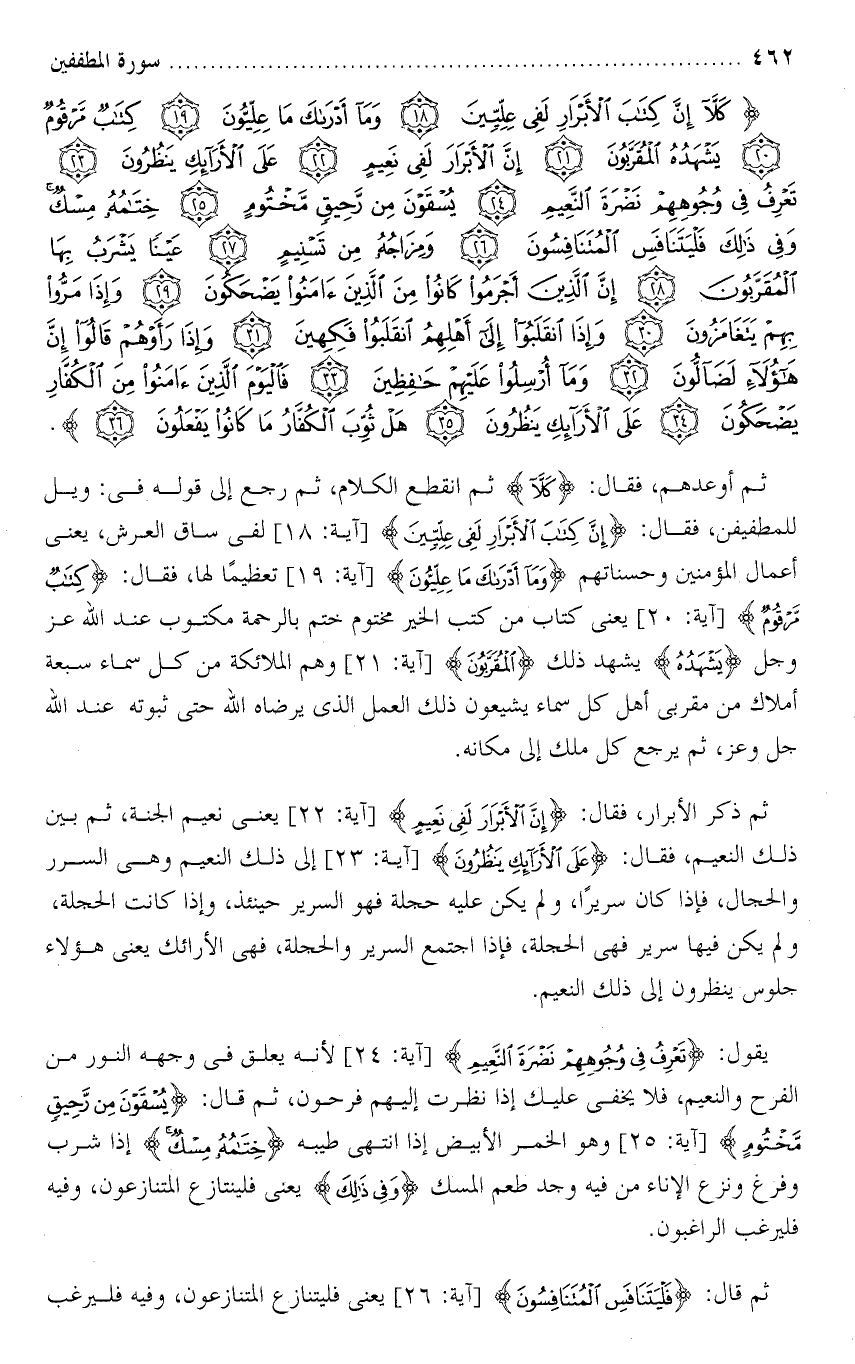 ٤٦٢ ........................................................................ سورة المطففين
﴿ كَلَّآ إِنَّ كِتَٰبَ ٱلْأَبْرَارِ لَفِى عِلِّيِّينَ ۝١٨ وَمَآ أَدْرَىٰكَ مَا عِلِّيُّونَ ۝١٩ كِتَٰبٌ مَّرْقُومٌ
۝٢٠ يَشْهَدُهُ ٱلْمُقَرَّبُونَ ۝٢١ إِنَّ ٱلْأَبْرَارَ لَفِى نَعِيمٍ ۝٢٢ عَلَى ٱلْأَرَآئِكِ يَنظُرُونَ ۝٢٣
تَعْرِفُ فِى وُجُوهِهِمْ نَضْرَةَ ٱلنَّعِيمِ ۝٢٤ يُسْقَوْنَ مِن رَّحِيقٍ مَّخْتُومٍ ۝٢٥ خِتَٰمُهُۥ مِسْكٌ ۚ
وَفِى ذَٰلِكَ فَلْيَتَنَافَسِ ٱلْمُتَنَٰفِسُونَ ۝٢٦ وَمِزَاجُهُۥ مِن تَسْنِيمٍ ۝٢٧ عَيْنًا يَشْرَبُ بِهَا
ٱلْمُقَرَّبُونَ ۝٢٨ إِنَّ ٱلَّذِينَ أَجْرَمُوا۟ كَانُوا۟ مِنَ ٱلَّذِينَ ءَامَنُوا۟ يَضْحَكُونَ ۝٢٩ وَإِذَا مَرُّوا۟
بِهِمْ يَتَغَامَزُونَ ۝٣٠ وَإِذَا ٱنقَلَبُوٓا۟ إِلَىٰٓ أَهْلِهِمُ ٱنقَلَبُوا۟ فَكِهِينَ ۝٣١ وَإِذَا رَأَوْهُمْ قَالُوٓا۟ إِنَّ
هَٰٓؤُلَآءِ لَضَآلُّونَ ۝٣٢ وَمَآ أُرْسِلُوا۟ عَلَيْهِمْ حَٰفِظِينَ ۝٣٣ فَٱلْيَوْمَ ٱلَّذِينَ ءَامَنُوا۟ مِنَ ٱلْكُفَّارِ
يَضْحَكُونَ ۝٣٤ عَلَى ٱلْأَرَآئِكِ يَنظُرُونَ ۝٣٥ هَلْ ثُوِّبَ ٱلْكُفَّارُ مَا كَانُوا۟ يَفْعَلُونَ ۝٣٦ ﴾ .
ثم أوعدهم، فقال: ﴿كَلَّآ﴾ ثم انقطع الكلام، ثم رجع إلى قوله فى: ويل
للمطفيفن، فقال: ﴿إِنَّ كِتَٰبَ ٱلْأَبْرَارِ لَفِى عِلِّيِّينَ﴾ [آية: ١٨] لفى ساق العرش، يعنى
أعمال المؤمنين وحسناتهم ﴿وَمَآ أَدْرَىٰكَ مَا عِلِّيُّونَ﴾ [آية: ١٩] تعظيمًا لها، فقال: ﴿كِتَٰبٌ
مَّرْقُومٌ﴾ [آية: ٢٠] يعنى كتاب من كتب الخير مختوم ختم بالرحمة مكتوب عند الله عز
وجل ﴿يَشْهَدُهُ﴾ يشهد ذلك ﴿ٱلْمُقَرَّبُونَ﴾ [آية: ٢١] وهم الملائكة من كل سماء سبعة
أملاك من مقربى أهل كل سماء يشيعون ذلك العمل الذى يرضاه الله حتى ثبوته عند الله
جل وعز، ثم يرجع كل ملك إلى مكانه.
ثم ذكر الأبرار، فقال: ﴿إِنَّ ٱلْأَبْرَارَ لَفِى نَعِيمٍ﴾ [آية: ٢٢] يعنى نعيم الجنة، ثم بين
ذلك النعيم، فقال: ﴿عَلَى ٱلْأَرَآئِكِ يَنظُرُونَ﴾ [آية: ٢٣] إلى ذلك النعيم وهى السرر
والحجال، فإذا كان سريرًا، ولم يكن عليه حجلة فهو السرير حينئذ، وإذا كانت الحجلة،
ولم يكن فيها سرير فهى الحجلة، فإذا اجتمع السرير والحجلة، فهى الأرائك يعنى هؤلاء
جلوس ينظرون إلى ذلك النعيم.
يقول: ﴿تَعْرِفُ فِى وُجُوهِهِمْ نَضْرَةَ ٱلنَّعِيمِ﴾ [آية: ٢٤] لأنه يعلق فى وجهه النور من
الفرح والنعيم، فلا يخفى عليك إذا نظرت إليهم فرحون، ثم قال: ﴿يُسْقَوْنَ مِن رَّحِيقٍ
مَّخْتُومٍ﴾ [آية: ٢٥] وهو الخمر الأبيض إذا انتهى طيبه ﴿خِتَٰمُهُۥ مِسْكٌ ۚ﴾ إذا شرب
وفرغ ونزع الإناء من فيه وجد طعم المسك ﴿وَفِى ذَٰلِكَ﴾ يعنى فلينتازع المتنازعون، وفيه
فليرغب الراغبون.
ثم قال: ﴿فَلْيَتَنَافَسِ ٱلْمُتَنَٰفِسُونَ﴾ [آية: ٢٦] يعنى فليتنازع المتنازعون، وفيه فليرغب